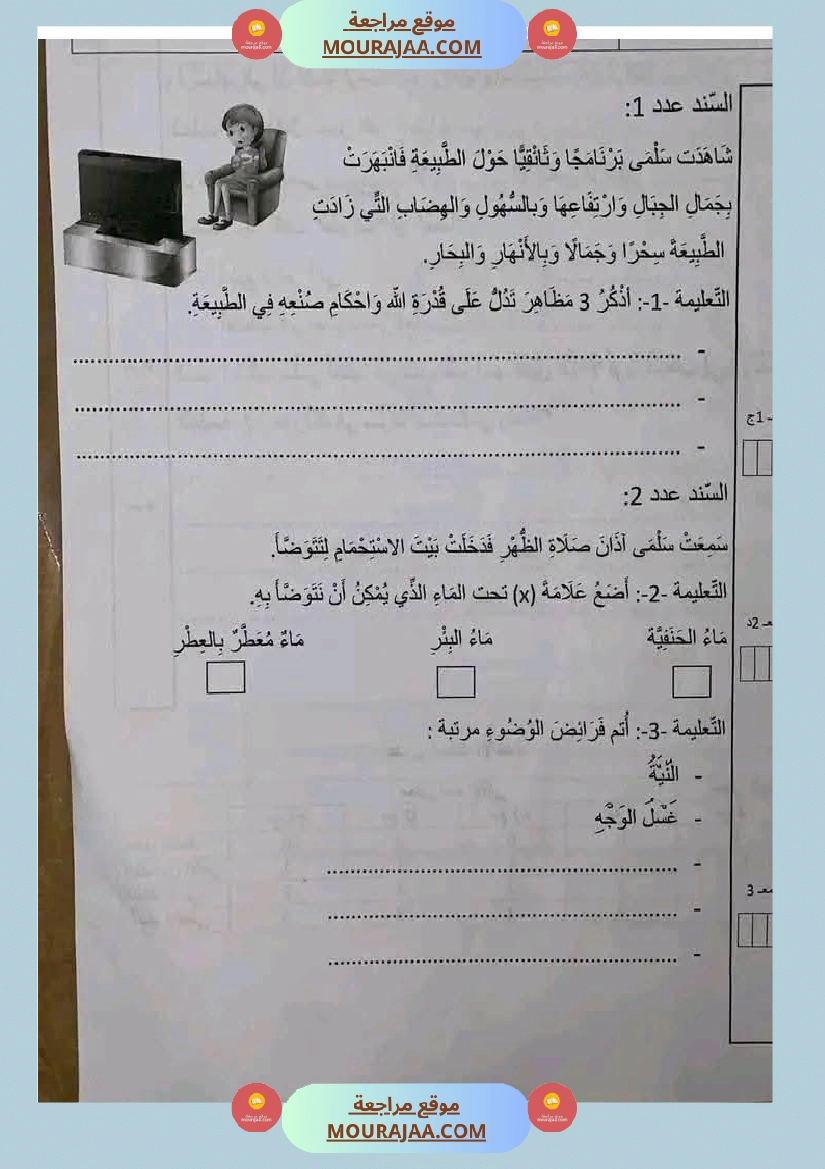 موقع مراجعة
MOURAJAA.COM
السّند عدد 1:
شَاهَدَت سَلْمَى بَرْنَامَجًا وَثَائِقِيًّا حَوْلَ الطَّبِيعَةِ فَانْبَهَرَتْ
بِجَمَالِ الجِبَالِ وَارْتِفَاعِهَا وَبالسُّهُولِ وَالهِضَابِ التِّي زَادَتِ
الطَّبِيعَةَ سِحْرًا وَجَمَالًا وَبِالأَنْهَارِ وَالبِحَارِ.
التّعليمة -1-: أذْكُرُ 3 مَظَاهِرَ تَدُلُّ عَلَى قُدْرَةِ اللّه وَاحْكَامِ صُنْعِهِ فِي الطَّبِيعَةِ.
- ........................................
- ........................................
- ........................................
مـ 1ج
السّند عدد 2:
سَمِعَتْ سَلْمَى آذَانَ صَلَاةِ الظُّهْرِ فَدَخَلَتْ بَيْتَ الاسْتِحْمَامِ لِتَتَوَضَّأَ.
التّعليمة -2-: أَضَعُ عَلَامَةً (x) تحت المَاءِ الذِّي يُمْكِنُ أَنْ نَتَوَضَّأَ بِهِ.
مـ 2د
مَاءُ الحَنَفِيَّةِ مَاءُ البِئْرِ مَاءٌ مُعَطَّرٌ بِالعِطْرِ
التّعليمة -3-: أُتم فَرَائِضَ الوُضُوءِ مرتبة :
- النّيَّةُ
- غَسْلَ الوَجْهِ
- ........................................
معـ 3
- ........................................
- ........................................
موقع مراجعة
MOURAJAA.COM